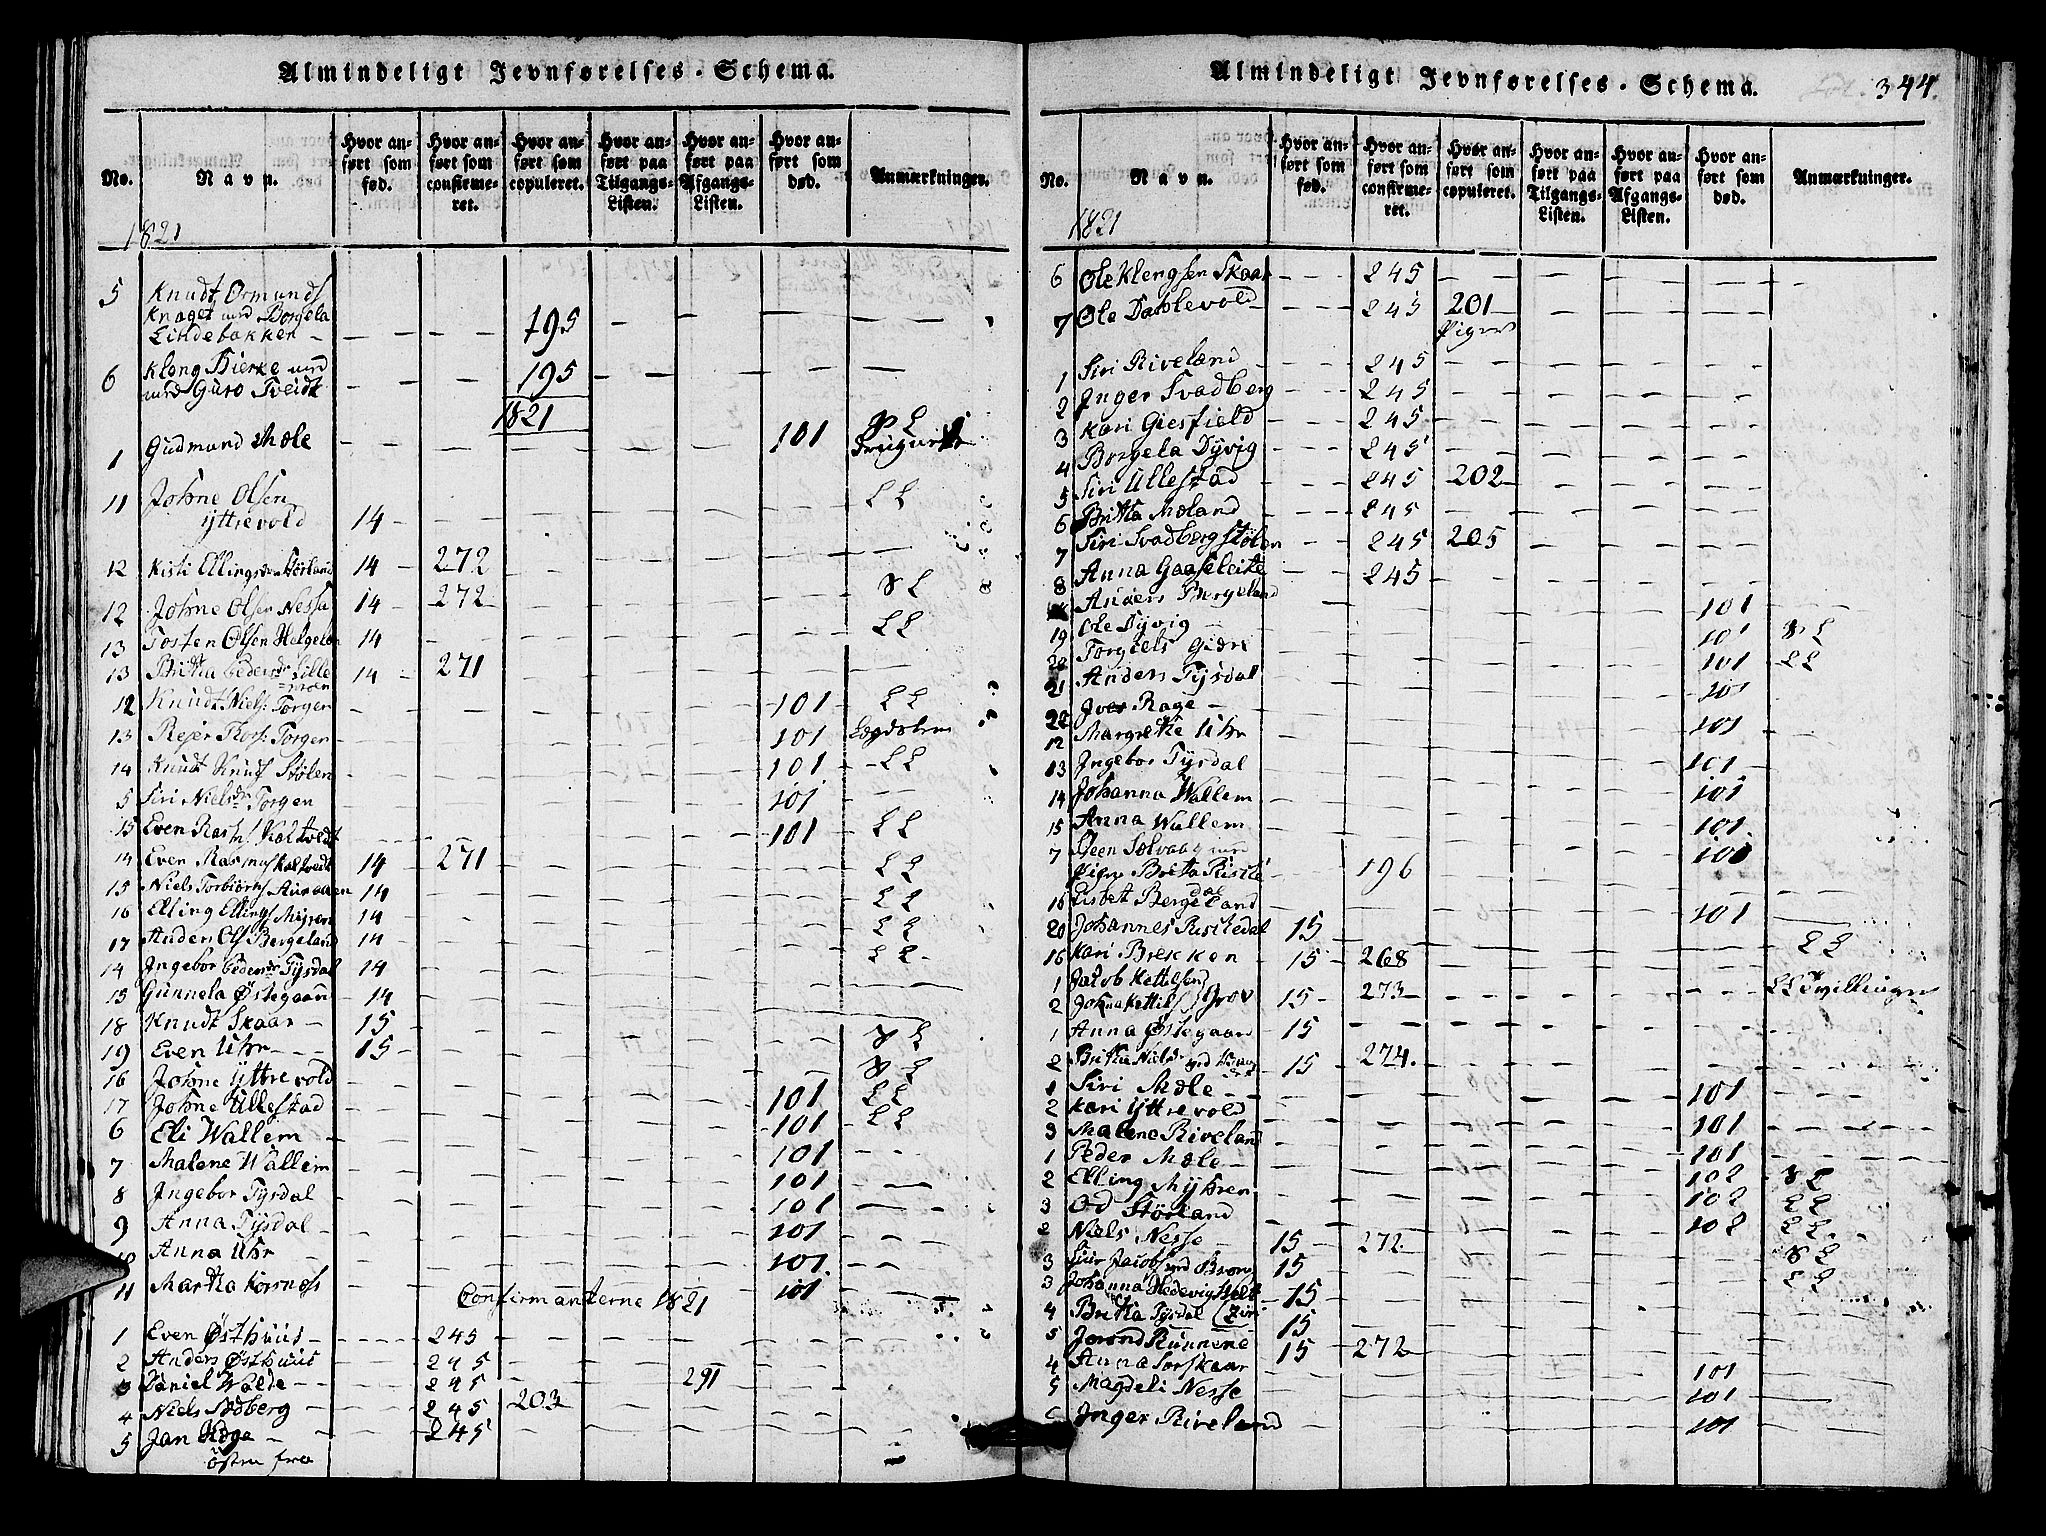 Almindeligt Jevnførelses-Schema.
No. Navn. Hvor anført som fød. Hvor anført som confirmeret. Hvor anført som copuleret. Hvor anført paa Tilgangs-Listen. Hvor anført paa Afgangs-Listen. Hvor anført som død. Anmærkninger.
1821
5 Knudt Ormunds
Knaget med Borgela
Lindebakken 195
6 Kleng Bierke med
med Guro Tveidt 195
1821
1 Gudmund Mæle 101
11 Johne Olsen
Yttrevold 14 L L
12 Kisti Ellings Störland 14 272
12 Johne Olsen Nessa 14 272 S L
13 Tosten Olsen Helgeland 14 L L
13 Britta Peders Lille 14 271
12 Knudt Niels: Torgen 101 L L
13 Rejer Thors: Torgen 101
14 Knudt Knuds Stølen 101 L L
5 Siri Niels Torgen 101
15 Even Rasm Kaltvedt 101 L L
14 Even Rasmus Kaltvedt 14 271
15 Niels Torbiörns 14 L L
16 Elling Ellings Myren 14 L L
17 Anders Ols Bergeland 14 L L
14 Ingebor Peders Tysdal 14 L L
15 Gunnela Østegaard 14
18 Knudt Skaar 15
19 Even Uhr 15 L
16 Johne Yttrevold 101 L
17 Johne Ullestad 101 L L
6 Eli Wallem 101 L L
7 Malene Wallem 101
8 Ingebor Tysdal 101
9 Anna Tysdal 101
10 Anna Uhr 101
11 Martha Korsnæs 101
Confirmanterne 1821
1 Even Østhuus 245
2 Anders Østhuus 245
3 Daniel Walde 245 291
4 Niels Sødberg 245 203
5 Jan Høga 245
östen fra
Almindeligt Jevnførelses-Schema. 344.
No. Navn. Hvor anført som fød. Hvor anført som confirmeret. Hvor anført som copuleret. Hvor anført paa Tilgangs-Listen. Hvor anført paa Afgangs-Listen. Hvor anført som død. Anmærkninger.
1821
6 Ole Klengsen Skaar 245
7 Ole Dablevold 245 201
Piger
1 Siri Riveland 245
2 Inger Svadberg 245
3 Kari Giesfield 245
4 Borgela Dyvig 245
5 Siri Ullestad 245 202
6 Britta Meland 245
7 Siri Svadbergstølen 245 205
8 Anna Gaaseleite 245
Anders Bergeland 101
19 Ole Dyvig 101 S L
20 Torgiels Gidre 101 L L
21 Anders Tysdal 101
22 Iver Rage 101
12 Margrethe Uhr
13 Ingebor Tysdal 101
14 Johanna Wallem 101
15 Anna Wallem 101
7 Steen Solvaag med 101
Pigen Britta Riste 196
16 Lisbet Bergeland 101
20 Johannes Ristedal 15 L L
16 Kari Brekken 15 268
1 Jakob Kettelsen
2 Johna Kettils Grov 15 273 Tvillinger
1 Anna Østegaard 15
2 Britta Niels 15 274.
1 Siri Mæle 101
2 Kari Yttrevold 101
3 Malene Riveland 101
1 Peder Mæle 102 S L
2 Elling Myhren 102 L L
3 Od Störland 102 L L
2 Niels Nesse 15 272 S L
3 Jacobs 15 L L
3 Johanna Hedevig 15
4 Britta Tysdal 15
5 Jorond Runnene 15 272
4 Anna Sorskaar 101
5 Magdeli Nesse 101
6 Inger Riveland 101